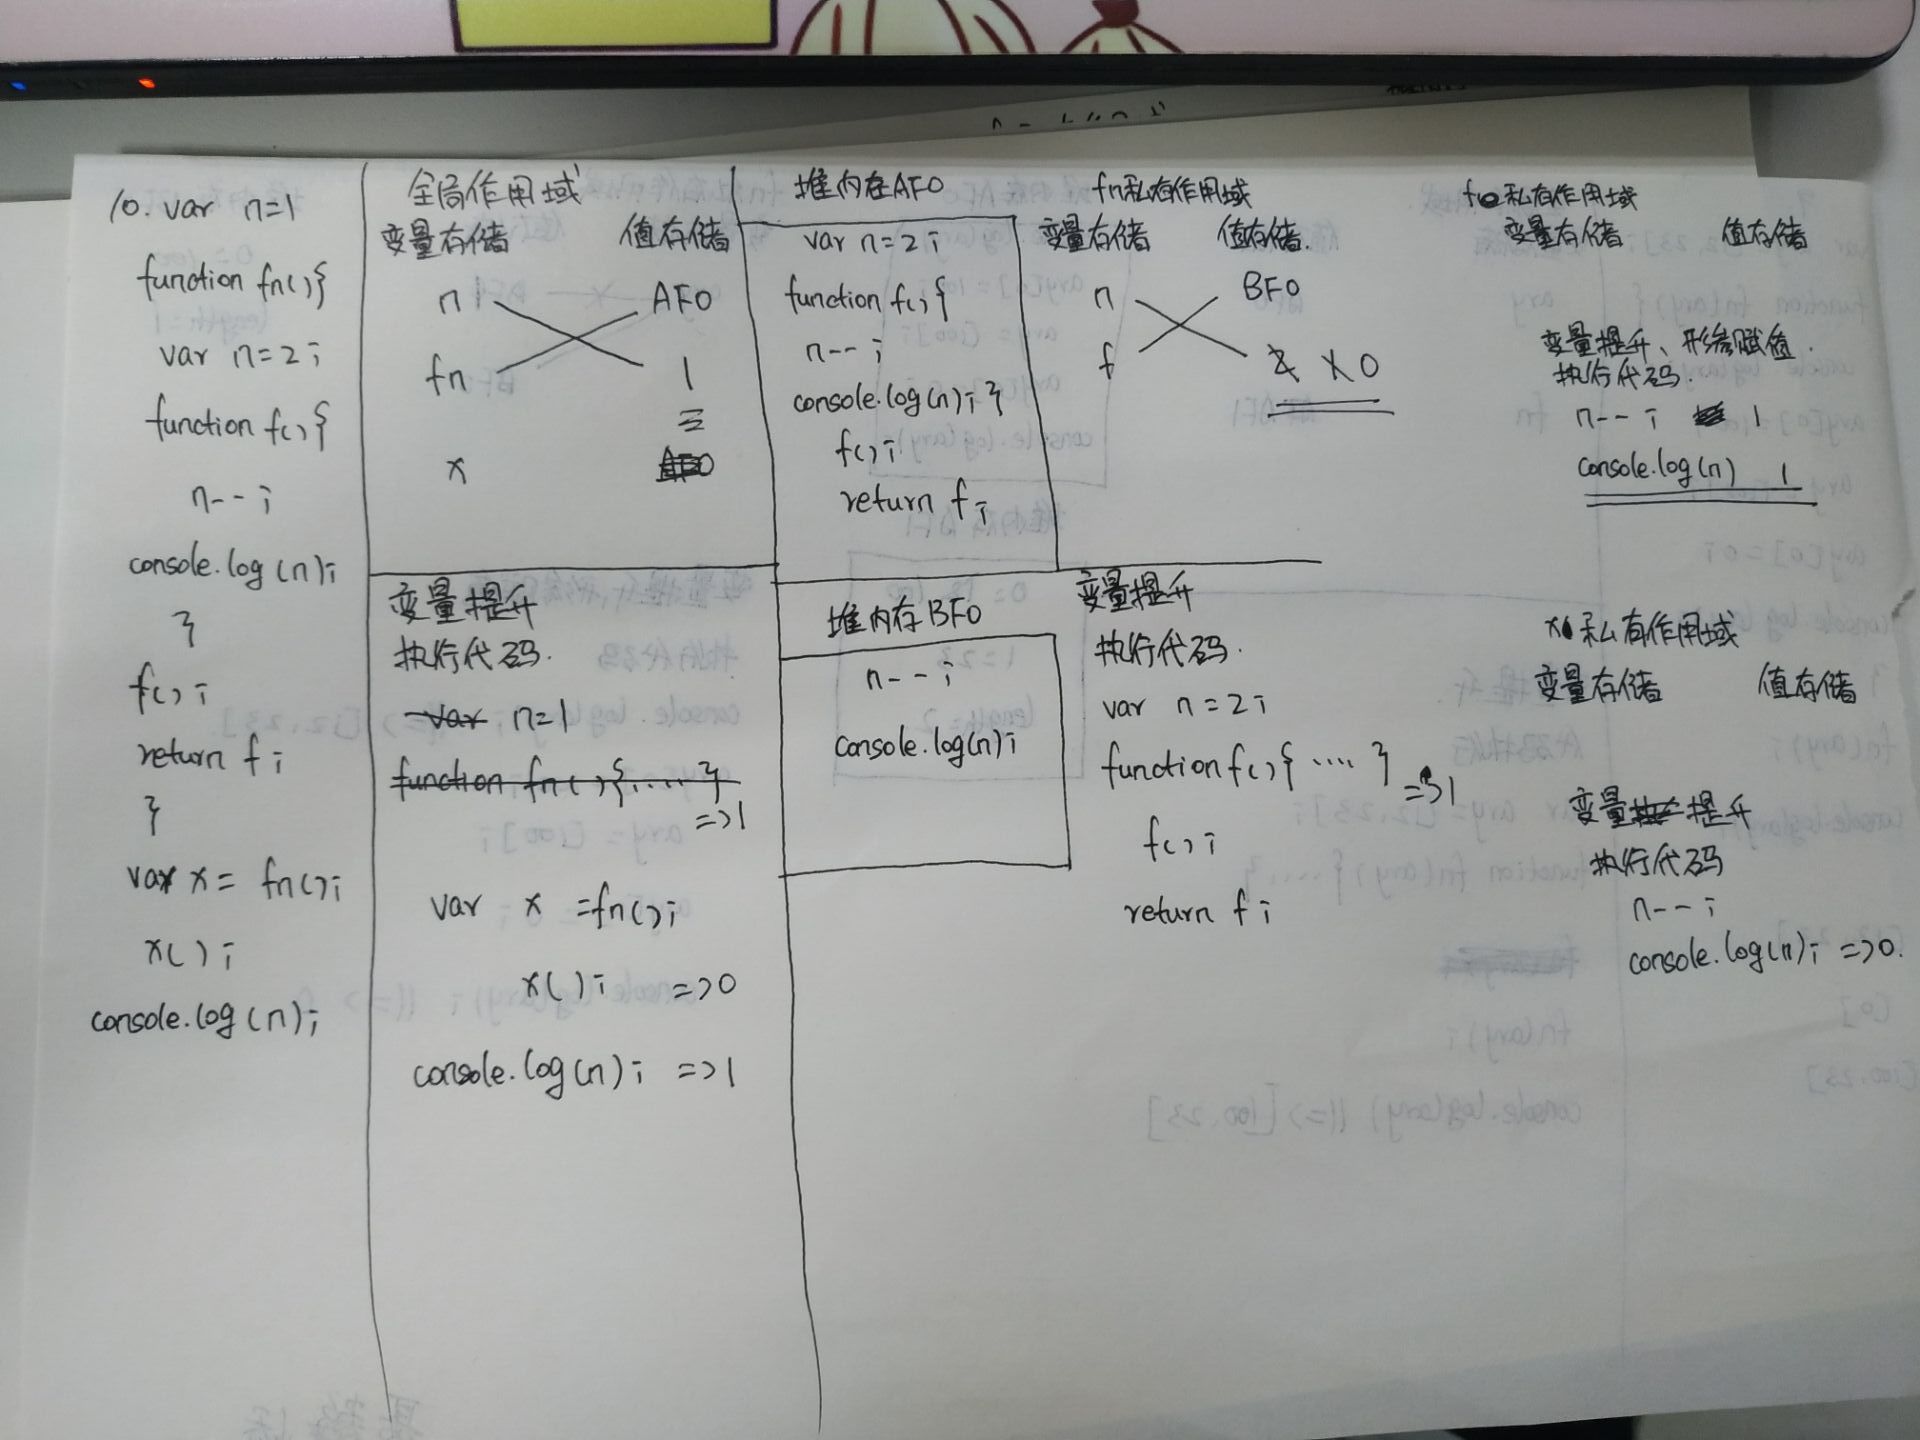 10. var n=1
function fn(){
var n=2;
function f(){
n--;
console.log(n);
}
f();
return f;
}
var x= fn();
x();
console.log(n);
全局作用域
变量存储 值存储
n AF0
fn 1
x
变量提升
执行代码.
var n=1
function fn(){.....}
=>1
var x =fn();
x(); =>0
console.log(n); =>1
堆内存AF0
var n=2;
function f(){
n--;
console.log(n);}
f();
return f;
堆内存BF0
n--;
console.log(n);
fn私有作用域
变量存储 值存储.
n BF0
f 2 1 0
变量提升
执行代码.
var n=2;
function f(){....}
=>1
f();
return f;
f私有作用域
变量存储 值存储
变量提升、形参赋值.
执行代码.
n--; 1
console.log(n) 1
x私有作用域
变量存储 值存储
变量提升
执行代码
n--;
console.log(n); =>0.